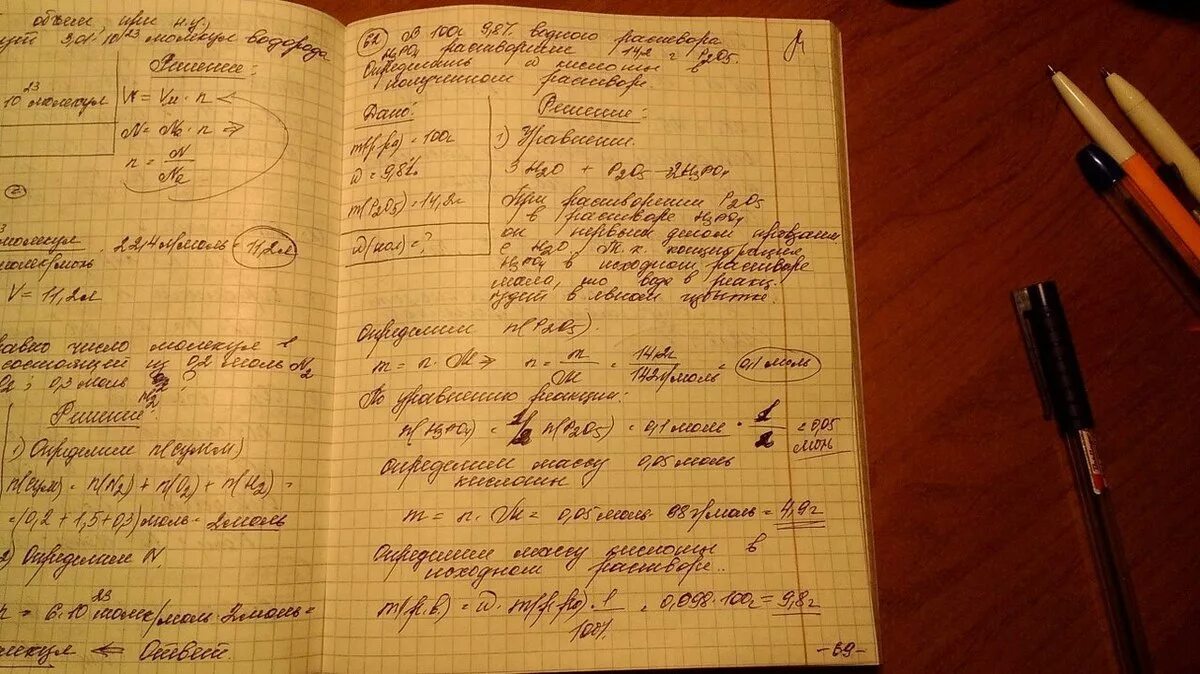 объем, при н.у.,
3,01·10²³ молекул водорода
Решение:
10²³ молекул
V = Vм · n <
N = N₀ · n ⇒
n = N/N₀
молекул
22,4 л/моль = 11,2л
V = 11,2л
число молекул в
состоящей из 0,2 моль N₂
0,3 моль
H₂
Решение:
1) Определим n(сумм)
n(сум) = n(N₂) + n(O₂) + n(H₂) =
=(0,2 + 1,5 + 0,3) моль = 2моль
2) Определим N.
= 6·10²³ молек/моль · 2моль =
⇐ Ответ.
62 В 100г 9,8% водного раствора
H₃PO₄ растворили 14,2 г P₂O₅.
Определить ω кислоты в
полученном растворе.
Дано:
m(р-ра) = 100г
ω = 9,8%
m(P₂O₅) = 14,2г
ω(кол) = ?
Решение:
1) Уравнение.
3H₂O + P₂O₅ = 2H₃PO₄
При растворении P₂O₅
в растворе H₃PO₄
он первым делом
с H₂O т.к. концентрация
H₃PO₄ в исходном растворе
мала, то вода в реакц.
будет в явном избытке.
Определим n(P₂O₅).
m = n · M ⇒ n = m/M = 14,2г/142г/моль = 0,1 моль
По уравнению реакции:
n(H₃PO₄) = 1/2 n(P₂O₅) = 0,1 моль · 1/2 = 0,05 моль
Определим массу 0,05 моль
кислоты
m = n · M = 0,05 моль · 98 г/моль = 4,9г
Определим массу кислоты в
исходном растворе..
m(р.в) = ω · m(р-ра) · 1/100% = 0,098 · 100г = 9,8г
-69-